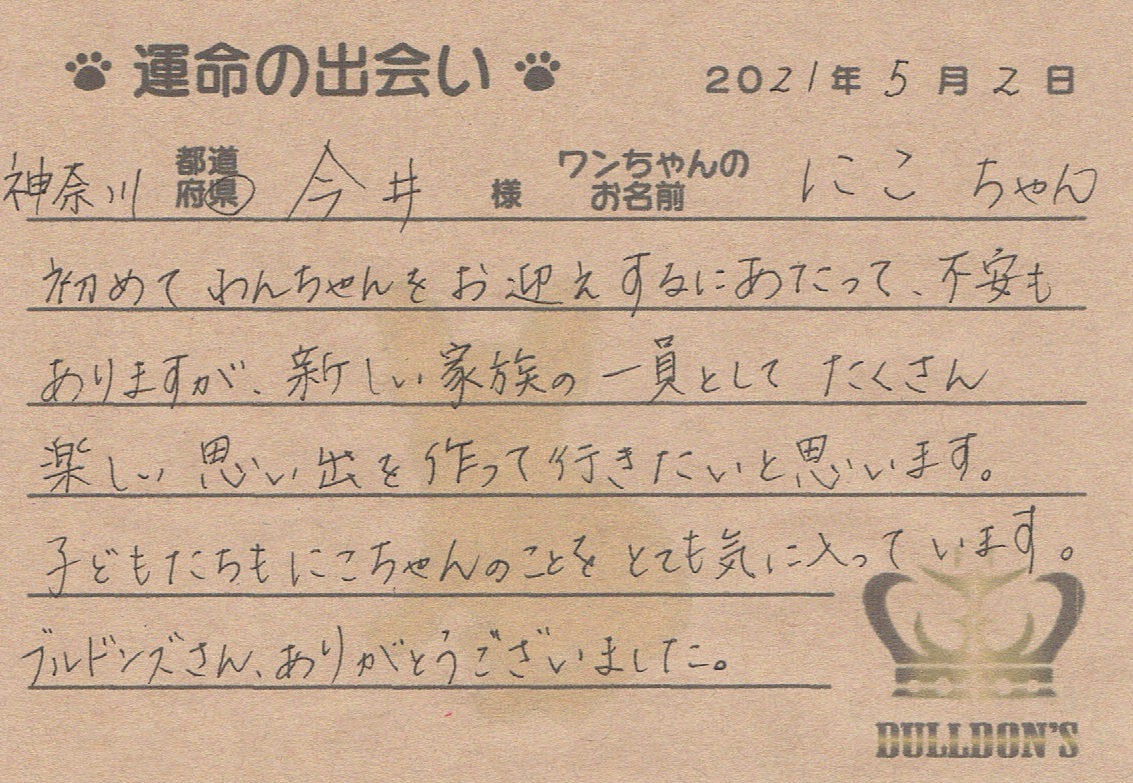 運命の出会い
2021年5月2日
神奈川 都道府県 今井 様 ワンちゃんのお名前 にこ ちゃん
初めてわんちゃんをお迎えするにあたって、不安も
ありますが、新しい家族の一員としてたくさん
楽しい思い出を作って行きたいと思います。
子どもたちもにこちゃんのことをとても気に入っています。
ブルドンズさん、ありがとうございました。
BULLDON'S